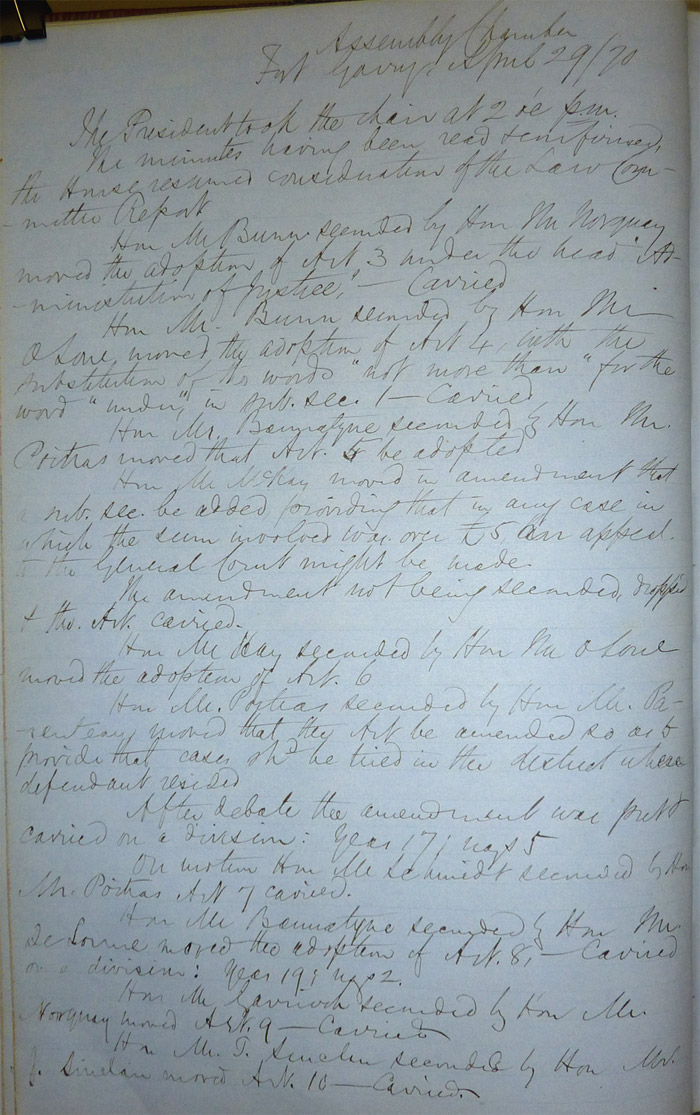 Assembly Chamber
Fort Garry, April 29/70
The President took the chair at 2 o'c p.m.
The minutes having been read & confirmed,
the House resumed consideration of the Law Com-
-mittee Report
Hon Mr Bunn seconded by Hon Mr Norquay
moved the adoption of Art 3 under the head "Ad-
-ministration of Justice," — Carried
Hon Mr. Bunn seconded by Hon Mr
O'Lone, moved the adoption of Art 4, with the
substitution of the words "not more than" for the
word "under," in sub. sec. 1 — Carried
Hon Mr. Bannatyne seconded by Hon Mr.
Poitras moved that Art. 5 be adopted
Hon Mr McKay moved in amendment that
a sub. sec. be added, providing that in any case in
which the sum involved was over £5, an appeal
to the General Court might be made.
The amendment not being seconded, dropped
& the Art. carried.
Hon Mr Hay seconded by Hon Mr O'Lone
moved the adoption of Art. 6
Hon Mr. Poitras seconded by Hon Mr. Pa-
renteau, moved that the Art be amended so as to
provide that cases shd be tried in the district where
defendant resided
After debate the amendment was put &
carried on a division: Yeas 17; nays 5
On motion Hon Mr Schmidt seconded by Hon
Mr. Poitras Art 7 carried.
Hon Mr Bannatyne seconded by Hon Mr
De Lorme moved the adoption of Art. 8, — Carried
on a division: Yeas 19; nays 2.
Hon Mr Garrioch seconded by Hon Mr.
Norquay moved Art. 9 — Carried
Hon Mr. T. Sinclair seconded by Hon Mr.
J. Sinclair moved Art. 10 — Carried.